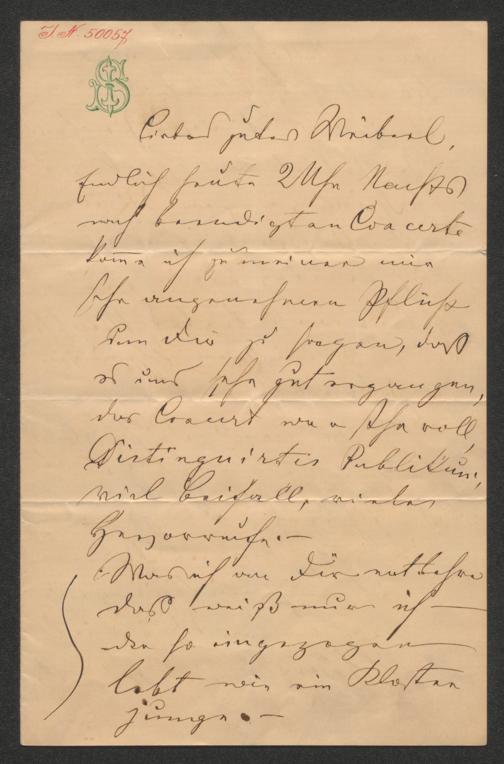 I. N. 50057
Liebes gutes Weiberl,
Endlich heute 2 Uhr Nachts
nach beendigten Concerte
kome ich zu meiner mir
sehr angenehmen Pflicht
um Dir zu sagen, daß
es uns sehr gut ergangen,
das Concert war sehr voll,
Distinguirtes Publikum,
viel Beifall, vieles
Hervorrufe. —
Was ich an Dir entbehre
daß weiß nur ich —
der so eingezogen
lebt wie ein Kloster
junge. —